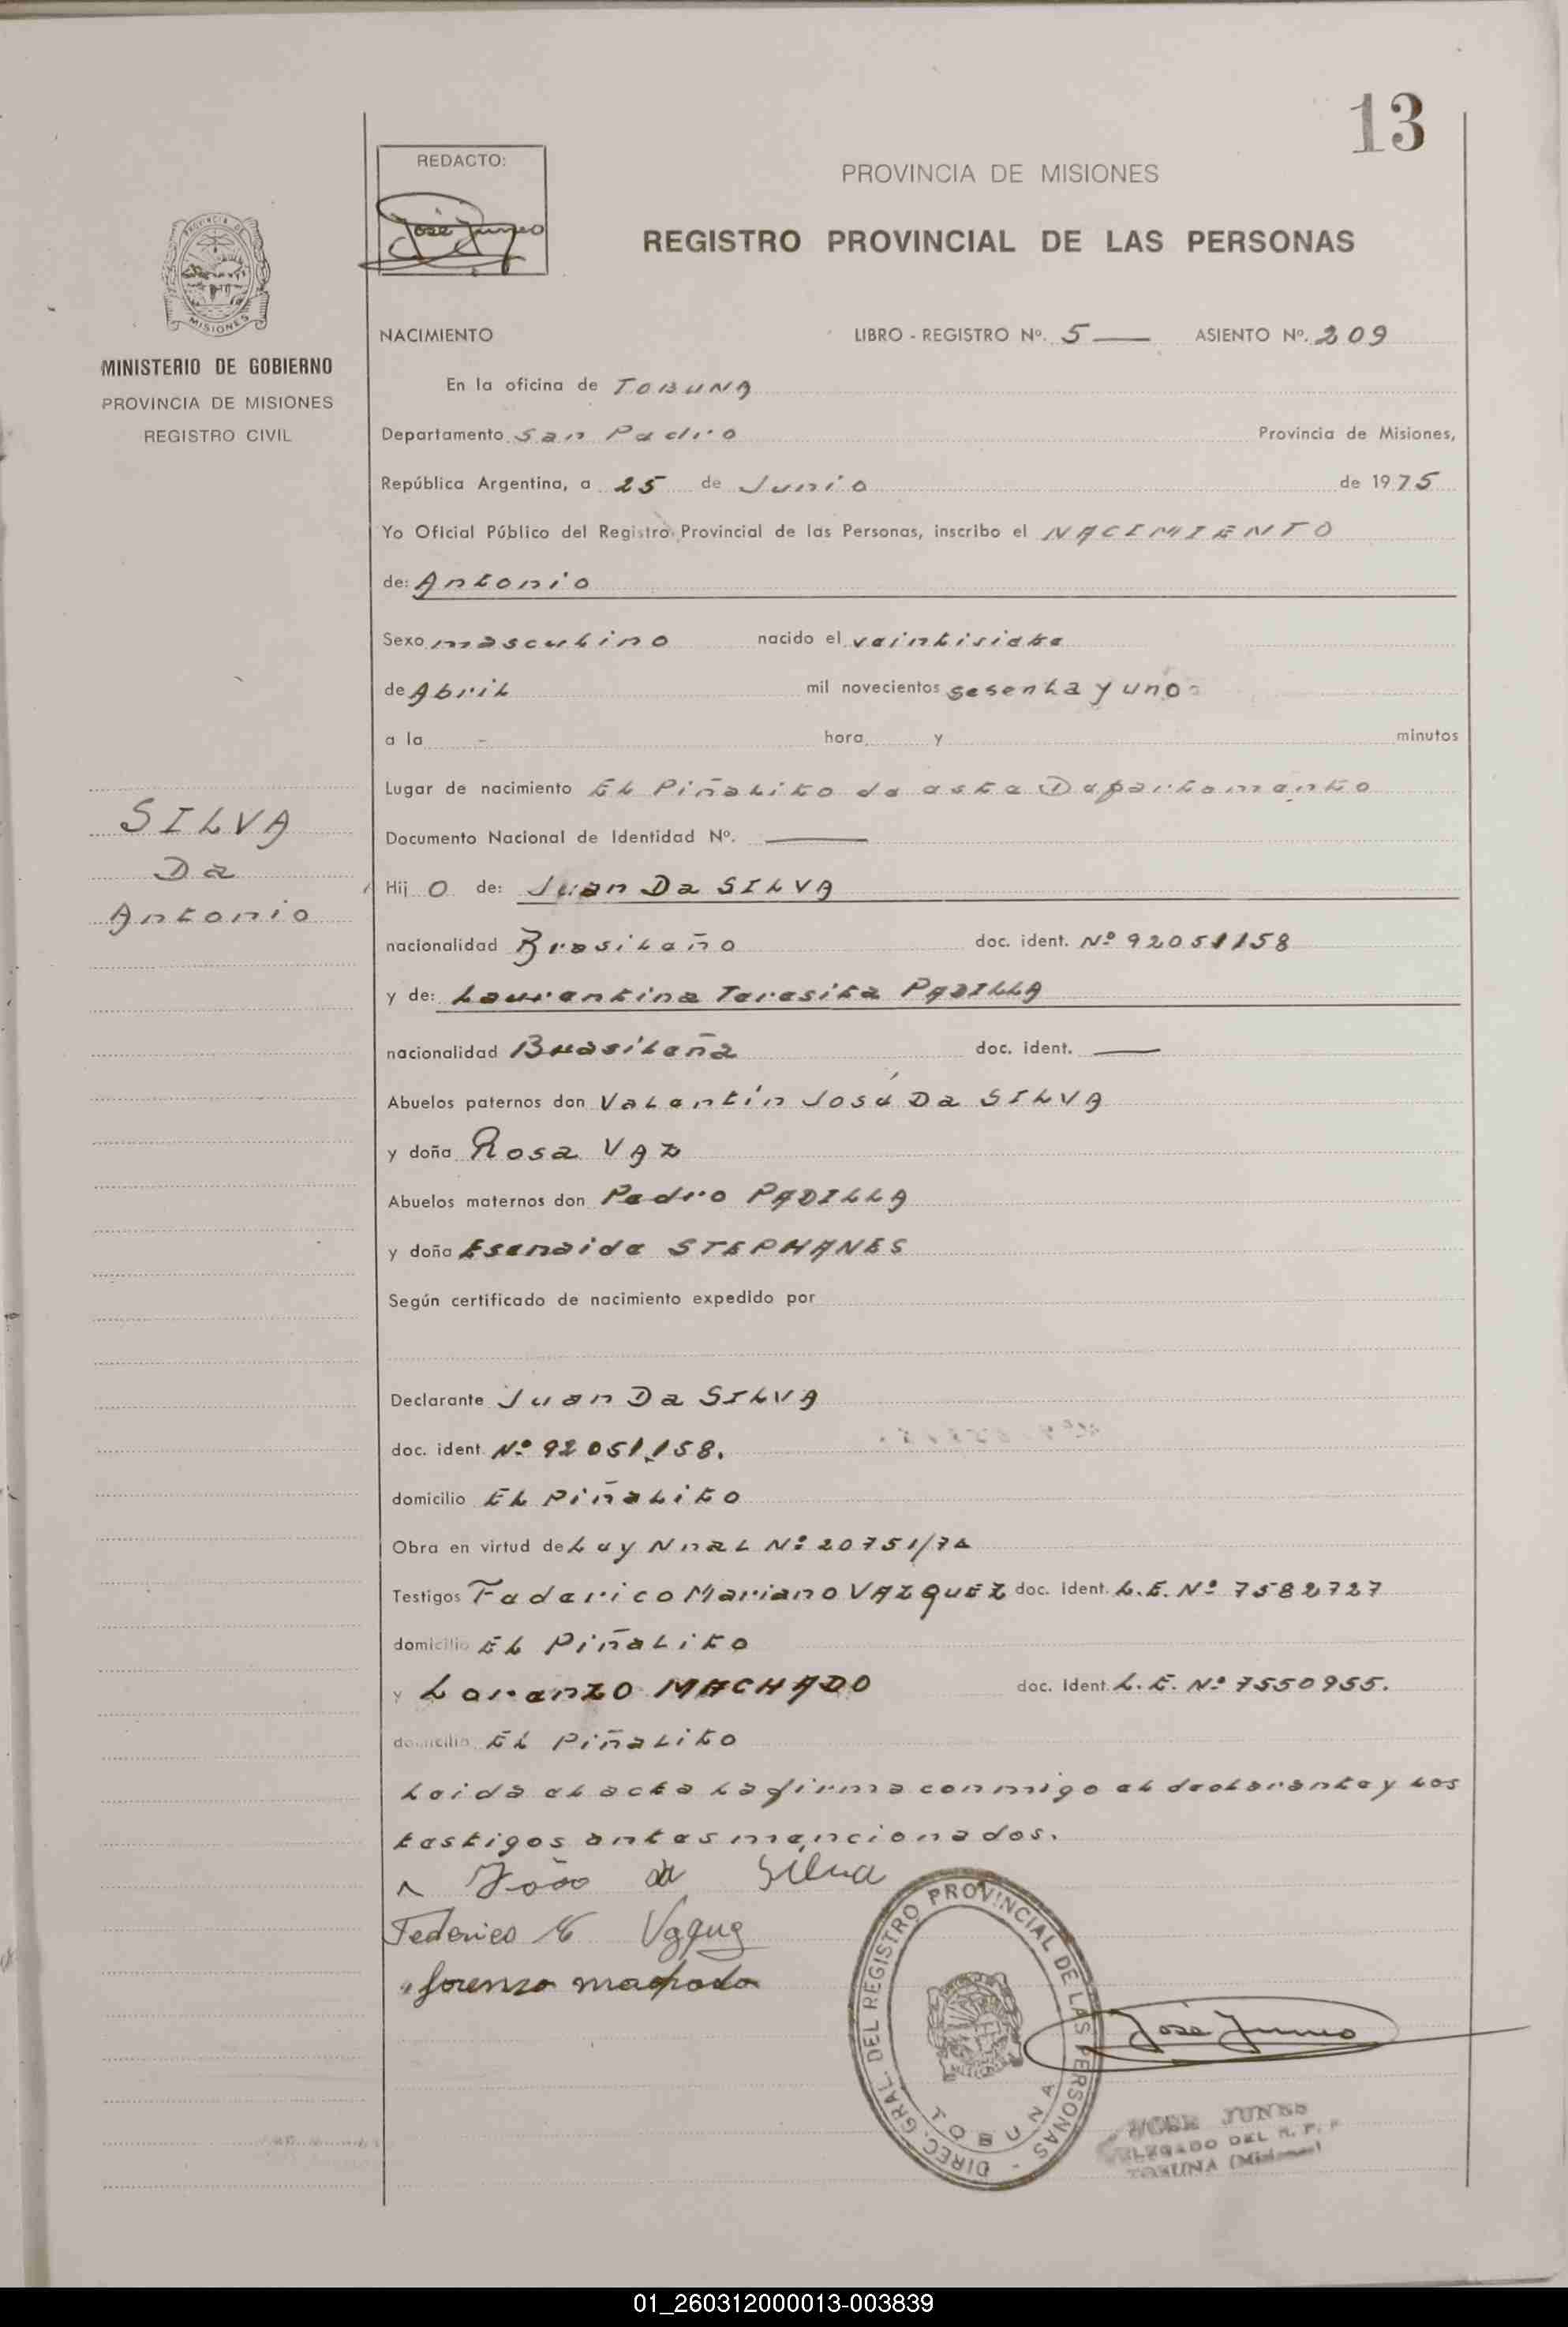 13
REDACTO:
José Junes
PROVINCIA DE MISIONES
REGISTRO PROVINCIAL DE LAS PERSONAS
PROVINCIA DE
MISIONES
MINISTERIO DE GOBIERNO
PROVINCIA DE MISIONES
REGISTRO CIVIL
SILVA
Da
Antonio
NACIMIENTO LIBRO - REGISTRO Nº. 5 — ASIENTO Nº. 209
En la oficina de TOBUNA
Departamento San Pedro Provincia de Misiones,
República Argentina, a 25 de Junio de 1975
Yo Oficial Público del Registro Provincial de las Personas, inscribo el NACIMIENTO
de: Antonio
Sexo masculino nacido el veintisiete
de Abril mil novecientos sesenta y uno
a la - hora y minutos
Lugar de nacimiento El Piñalito de este Departamento
Documento Nacional de Identidad Nº. —
Hij o de: Juan Da SILVA
nacionalidad Brasileño doc. ident. Nº 92051158
y de: Laurentina Teresita PADILLA
nacionalidad Brasileña doc. ident. —
Abuelos paternos don Valentín José Da SILVA
y doña Rosa VAZ
Abuelos maternos don Pedro PADILLA
y doña Esenaide STEPHANES
Según certificado de nacimiento expedido por
Declarante Juan Da SILVA
doc. ident. Nº 92051158.
domicilio El Piñalito
Obra en virtud de Ley Nnal Nº 20751/74
Testigos Federico Mariano VAZQUEZ doc. Ident. L.E. Nº 7582727
domicilio El Piñalito
y Lorenzo MACHADO doc. Ident. L.E. Nº 7550955.
domicilio El Piñalito
Leida el acta la firma conmigo el declarante y los
testigos antes mencionados.
João da Silva
Federico M
Lorenzo machado
DIREC. GRAL. DEL REGISTRO PROVINCIAL DE LAS PERSONAS -
TOBUNA
José Junes
JOSE JUNES
DELEGADO DEL R. P. P.
TOBUNA (Misiones)
01_260312000013-003839